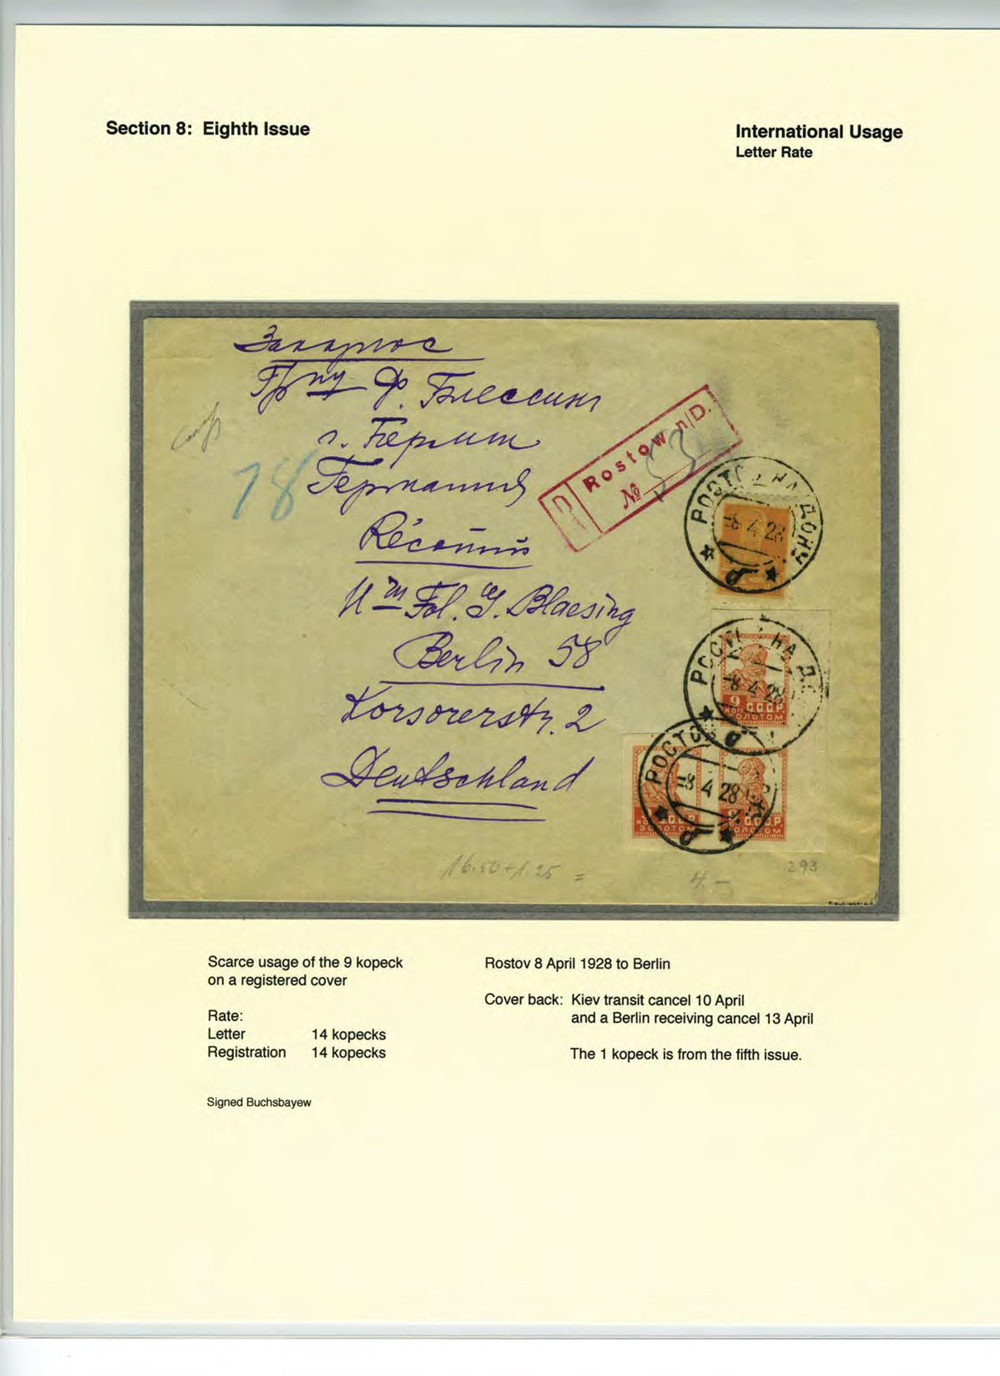 Section 8: Eighth Issue
International Usage
Letter Rate
Заказное
Гр-ну Ф. Блессинг
г. Берлин
Германия
78
R
Rostow n/D.
№ 53
РОСТОВ НА ДОНУ
-8 4 28
Р
Berlin 58
Korsorerstr. 2
Deutschland
Fol. G. Blaesing
РОСТОВ НА Д
-8 4 28
9 С.С.С.Р.
ЗОЛОТОМ
РОСТОВ
-8 4 28
С.С.С.Р.
ЗОЛОТОМ
9 С.С.С.Р.
ЗОЛОТОМ
16.50+1.25 =
4.—
293
Scarce usage of the 9 kopeck
on a registered cover
Rate:
Letter 14 kopecks
Registration 14 kopecks
Signed Buchsbayew
Rostov 8 April 1928 to Berlin
Cover back: Kiev transit cancel 10 April
and a Berlin receiving cancel 13 April
The 1 kopeck is from the fifth issue.